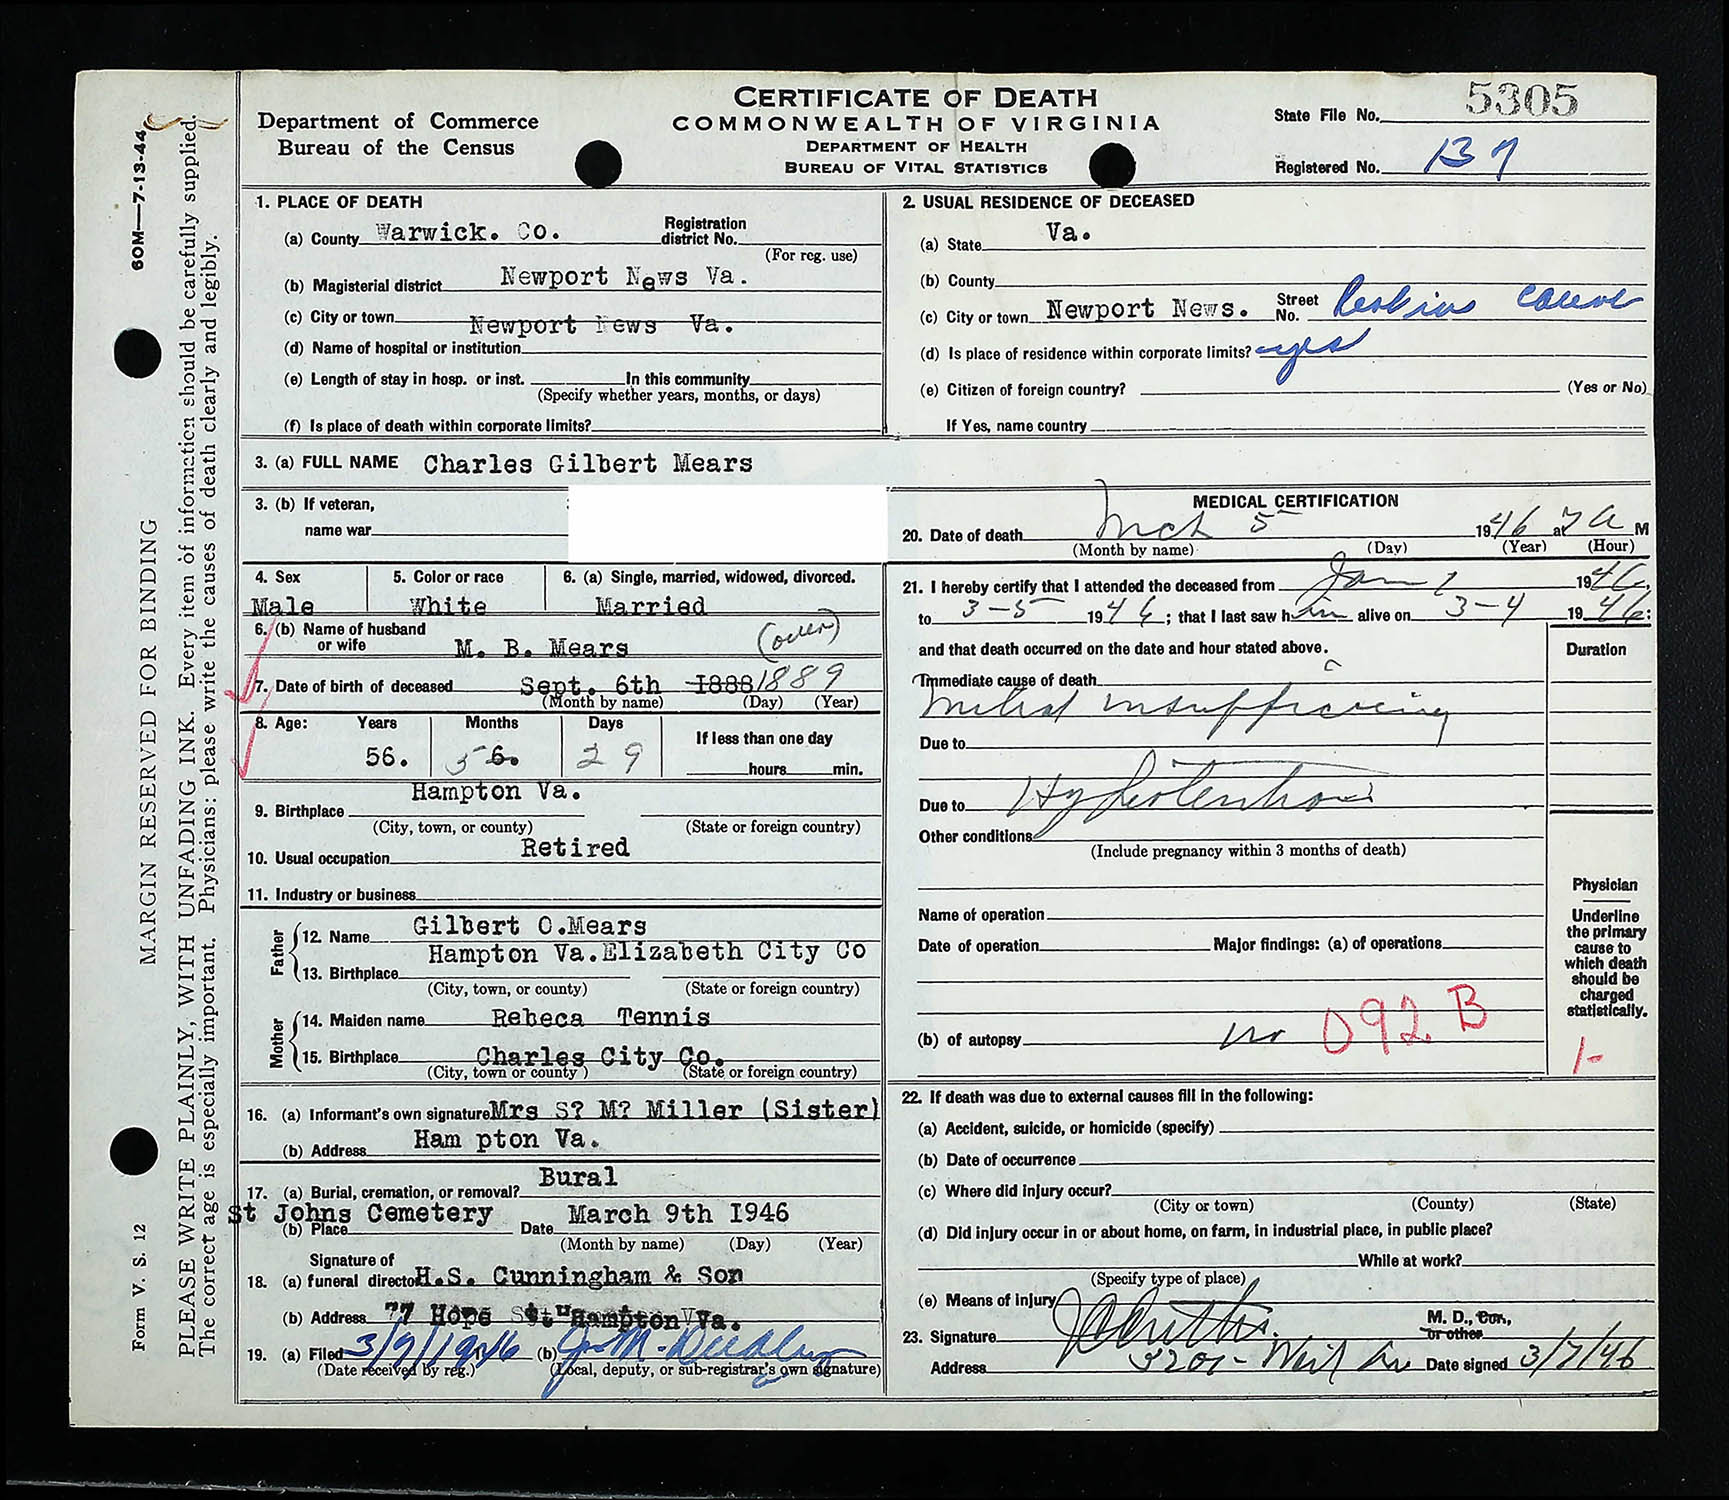 CERTIFICATE OF DEATH
COMMONWEALTH OF VIRGINIA
DEPARTMENT OF HEALTH
BUREAU OF VITAL STATISTICS
Department of Commerce
Bureau of the Census
State File No. 5305
Registered No. 137
60M—7-13-44
MARGIN RESERVED FOR BINDING
Form V. S. 12
PLEASE WRITE PLAINLY, WITH UNFADING INK. Every item of information should be carefully supplied.
The correct age is especially important. Physicians: please write the causes of death clearly and legibly.
1. PLACE OF DEATH
(a) County Warwick. Co. Registration district No.
(For reg. use)
(b) Magisterial district Newport News Va.
(c) City or town Newport News Va.
(d) Name of hospital or institution
(e) Length of stay in hosp. or inst. In this community
(Specify whether years, months, or days)
(f) Is place of death within corporate limits?
2. USUAL RESIDENCE OF DECEASED
(a) State Va.
(b) County
(c) City or town Newport News. Street No.
(d) Is place of residence within corporate limits? yes
(e) Citizen of foreign country? (Yes or No)
If Yes, name country
3. (a) FULL NAME Charles Gilbert Mears
3. (b) If veteran,
name war
4. Sex 5. Color or race 6. (a) Single, married, widowed, divorced.
Male White Married
6. (b) Name of husband
or wife M. B. Mears (over)
7. Date of birth of deceased Sept. 6th 1888 1889
(Month by name) (Day) (Year)
8. Age: Years Months Days If less than one day
56. 5 6. 29 hours min.
9. Birthplace Hampton Va.
(City, town, or county) (State or foreign country)
10. Usual occupation Retired
11. Industry or business
Father
12. Name Gilbert O.Mears
13. Birthplace Hampton Va.Elizabeth City Co
(City, town, or county) (State or foreign country)
Mother
14. Maiden name Rebeca Tennis
15. Birthplace Charles City Co.
(City, town or county) (State or foreign country)
16. (a) Informant's own signature Mrs S? M? Miller (Sister)
(b) Address Ham pton Va.
17. (a) Burial, cremation, or removal? Bural
(b) Place St Johns Cemetery Date March 9th I946
(Month by name) (Day) (Year)
Signature of
18. (a) funeral director H.S. Cunningham & Son
(b) Address 77 Hope St Hampton Va.
19. (a) Filed 3/9/1946 (b)
(Date received by reg.) (Local, deputy, or sub-registrar's own signature)
MEDICAL CERTIFICATION
20. Date of death Mch 5 1946 at 7 A M
(Month by name) (Day) (Year) (Hour)
21. I hereby certify that I attended the deceased from Jan 1 1946
to 3-5 1946; that I last saw him alive on 3-4 1946:
and that death occurred on the date and hour stated above.
Duration
Immediate cause of death
Mitral insufficiency
Due to
Due to Hypertension
Other conditions
(Include pregnancy within 3 months of death)
Name of operation
Date of operation Major findings: (a) of operations
(b) of autopsy no 092 B
Physician
Underline
the primary
cause to
which death
should be
charged
statistically.
1-
22. If death was due to external causes fill in the following:
(a) Accident, suicide, or homicide (specify)
(b) Date of occurrence
(c) Where did injury occur?
(City or town) (County) (State)
(d) Did injury occur in or about home, on farm, in industrial place, in public place?
While at work?
(Specify type of place)
(e) Means of injury
23. Signature M. D., Cor.,
or other
Address 3201- Date signed 3/7/46